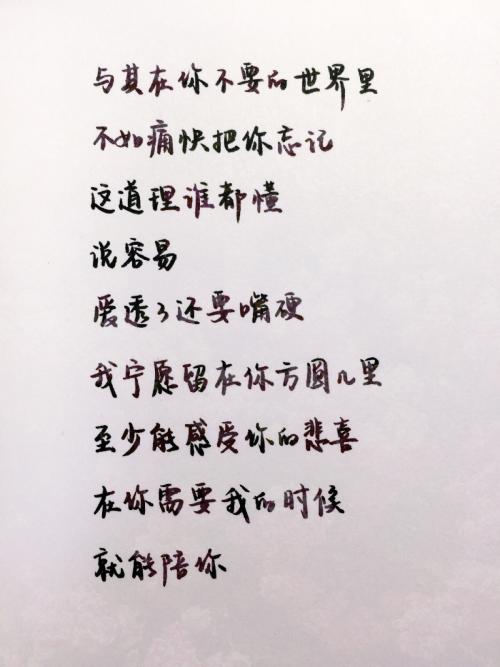 与其在你不要的世界里
不如痛快把你忘记
这道理谁都懂
说容易
爱透了还要嘴硬
我宁愿留在你方圆几里
至少能感受你的悲喜
在你需要我的时候
就能陪你